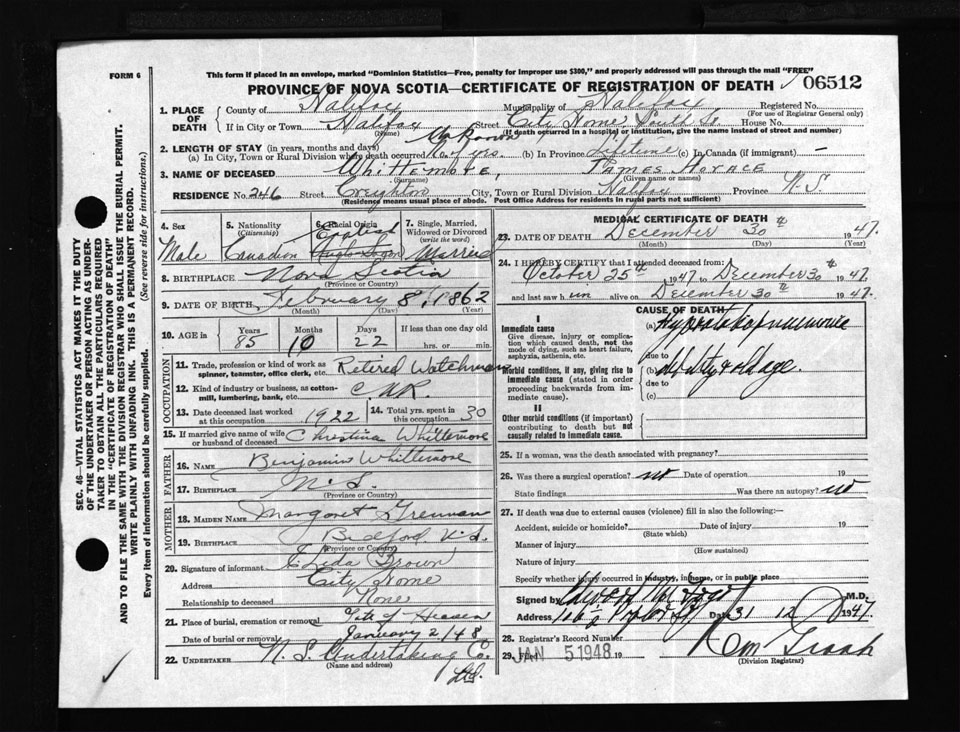 FORM 6
This form if placed in an envelope, marked "Dominion Statistics—Free, penalty for improper use $300," and properly addressed will pass through the mail "FREE"
PROVINCE OF NOVA SCOTIA—CERTIFICATE OF REGISTRATION OF DEATH 06512
1. PLACE OF DEATH
County of Halifax Municipality of Halifax Registered No.
(For use of Registrar General only)
If in City or Town Halifax Street City Home South St. House No.
(Name) (If death occurred in a hospital or institution, give the name instead of street and number)
2. LENGTH OF STAY (in years, months and days) Unknown
(a) In City, Town or Rural Division where death occurred yrs (b) In Province Lifetime (c) In Canada (if immigrant) —
3. NAME OF DECEASED Whittemore, James Horace
(Surname) (Given name or names)
RESIDENCE No. 246 Street Creighton City, Town or Rural Division Halifax Province N.S.
(Residence means usual place of abode. Post Office Address for residents in rural parts not sufficient)
4. Sex
Male
5. Nationality
(Citizenship)
Canadian
6. Racial Origin
English
Anglo-Saxon
7. Single, Married, Widowed or Divorced
(write the word)
Married
8. BIRTHPLACE Nova Scotia
(Province or Country)
9. DATE OF BIRTH February 8, 1862
(Month) (Day) (Year)
10. AGE in
Years Months Days If less than one day old
85 10 22 hrs. or min.
OCCUPATION
11. Trade, profession or kind of work as spinner, teamster, office clerk, etc. Retired Watchman
12. Kind of industry or business, as cotton-mill, lumbering, bank, etc. C.N.R.
13. Date deceased last worked at this occupation 1922 14. Total yrs. spent in this occupation 30
15. If married give name of wife or husband of deceased Christina Whittemore
FATHER
16. NAME Benjamin Whittemore
17. BIRTHPLACE N.S.
(Province or Country)
MOTHER
18. MAIDEN NAME Margaret Grennan
19. BIRTHPLACE Bedford N.S.
(Province or Country)
20. Signature of informant Elida Brown
Address City Home
Relationship to deceased None
21. Place of burial, cremation or removal Gate of Heaven
Date of burial or removal January 2/48
22. UNDERTAKER N.S. Undertaking Co. Ltd.
(Name and address)
MEDICAL CERTIFICATE OF DEATH
23. DATE OF DEATH December 30th 1947.
(Month) (Day) (Year)
24. I HEREBY CERTIFY that I attended deceased from:
October 25th 1947 to December 30th 1947.
and last saw him alive on December 30th 1947.
CAUSE OF DEATH
I
Immediate cause
Give disease, injury or complication which caused death, not the mode of dying, such as heart failure, asphyxia, asthenia, etc.
(a) Hypostatic pneumonia
due to
Morbid conditions, if any, giving rise to immediate cause (stated in order proceeding backwards from immediate cause).
(b) debility & old age.
due to
(c)
II
Other morbid conditions (if important) contributing to death but not causally related to immediate cause.
25. If a woman, was the death associated with pregnancy?
26. Was there a surgical operation? no Date of operation 19
State findings Was there an autopsy? no
27. If death was due to external causes (violence) fill in also the following:—
Accident, suicide or homicide? Date of injury 19
(State which)
Manner of injury
(How sustained)
Nature of injury
Specify whether injury occurred in industry, in home, or in public place
Signed by M.D.
Address Date 31 12 1947
28. Registrar's Record Number
29. Filed JAN 5 1948 19
(Division Registrar)
SEC. 46—VITAL STATISTICS ACT MAKES IT THE DUTY
OF THE UNDERTAKER OR PERSON ACTING AS UNDER-
TAKER TO OBTAIN ALL THE PARTICULARS REQUIRED
IN THE "CERTIFICATE OF REGISTRATION OF DEATH"
AND TO FILE THE SAME WITH THE DIVISION REGISTRAR WHO SHALL ISSUE THE BURIAL PERMIT.
WRITE PLAINLY WITH UNFADING INK. THIS IS A PERMANENT RECORD.
Every item of information should be carefully supplied. (See reverse side for instructions.)